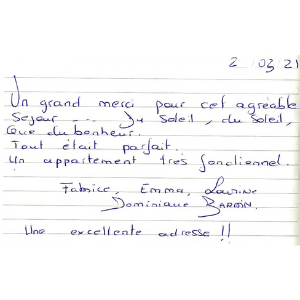 2/03/21
Un grand merci pour cet agréable
Séjour --- Du Soleil, du soleil,
Que du bonheur.
Tout était parfait.
Un appartement très fonctionnel.
Fabrice, Emma, Laurine
Dominique BARDIN.
Une excellente adresse !!